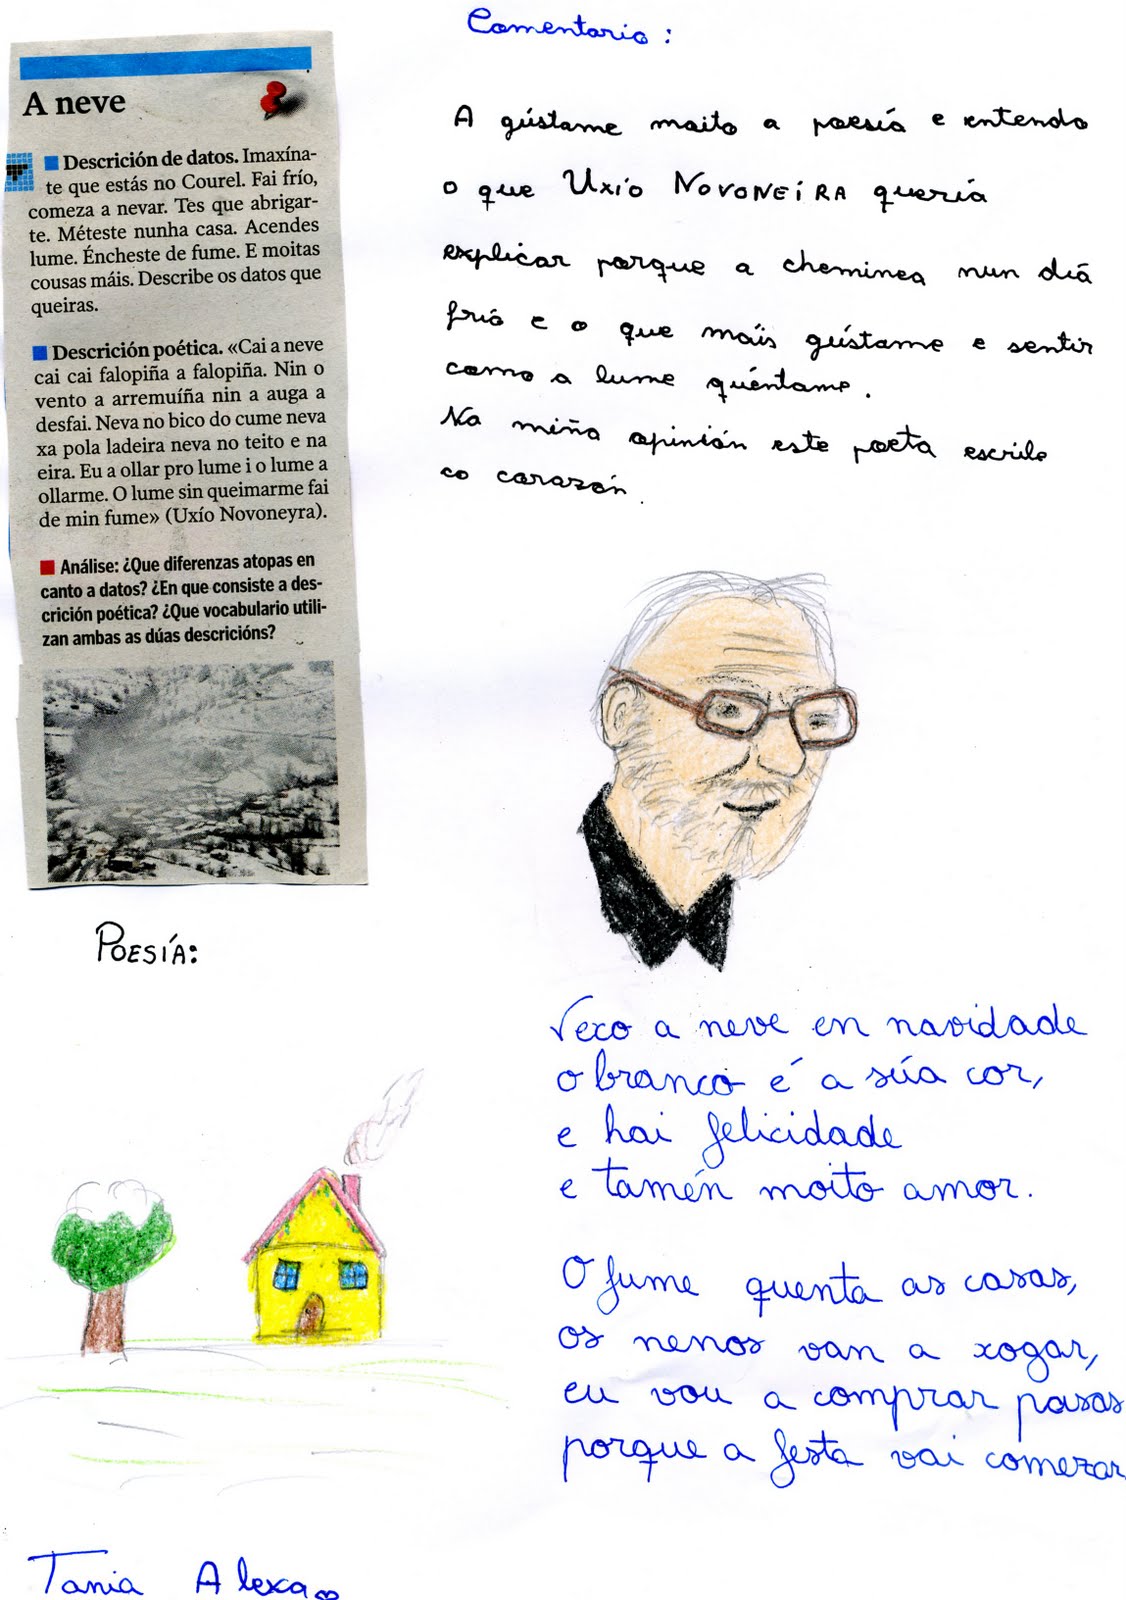 A neve
Descrición de datos. Imaxína-
te que estás no Courel. Fai frío,
comeza a nevar. Tes que abrigar-
te. Méteste nunha casa. Acendes
lume. Éncheste de fume. E moitas
cousas máis. Describe os datos que
queiras.
Descrición poética. «Cai a neve
cai cai falopiña a falopiña. Nin o
vento a arremuíña nin a auga a
desfai. Neva no bico do cume neva
xa pola ladeira neva no teito e na
eira. Eu a ollar pro lume i o lume a
ollarme. O lume sin queimarme fai
de min fume» (Uxío Novoneyra).
Análise: ¿Que diferenzas atopas en
canto a datos? ¿En que consiste a des-
crición poética? ¿Que vocabulario utili-
zan ambas as dúas descricións?
Comentario:
A gústame maito a poesía e entendo
o que Uxío NOVONEÍRA quería
explicar porque a cheminea nun diá
frió e o que máis gústame e sentir
como a lume quéntame.
Na miña opinión este poeta escribe
co corazón.
POESÍA:
Vexo a neve en navidade
o branco é a súa cor,
e hai felicidade
e tamén moito amor.
O fume quenta as casas,
os nenos van a xogar,
eu vou a comprar pasas
porque a festa vai comezar
Tania Alexa